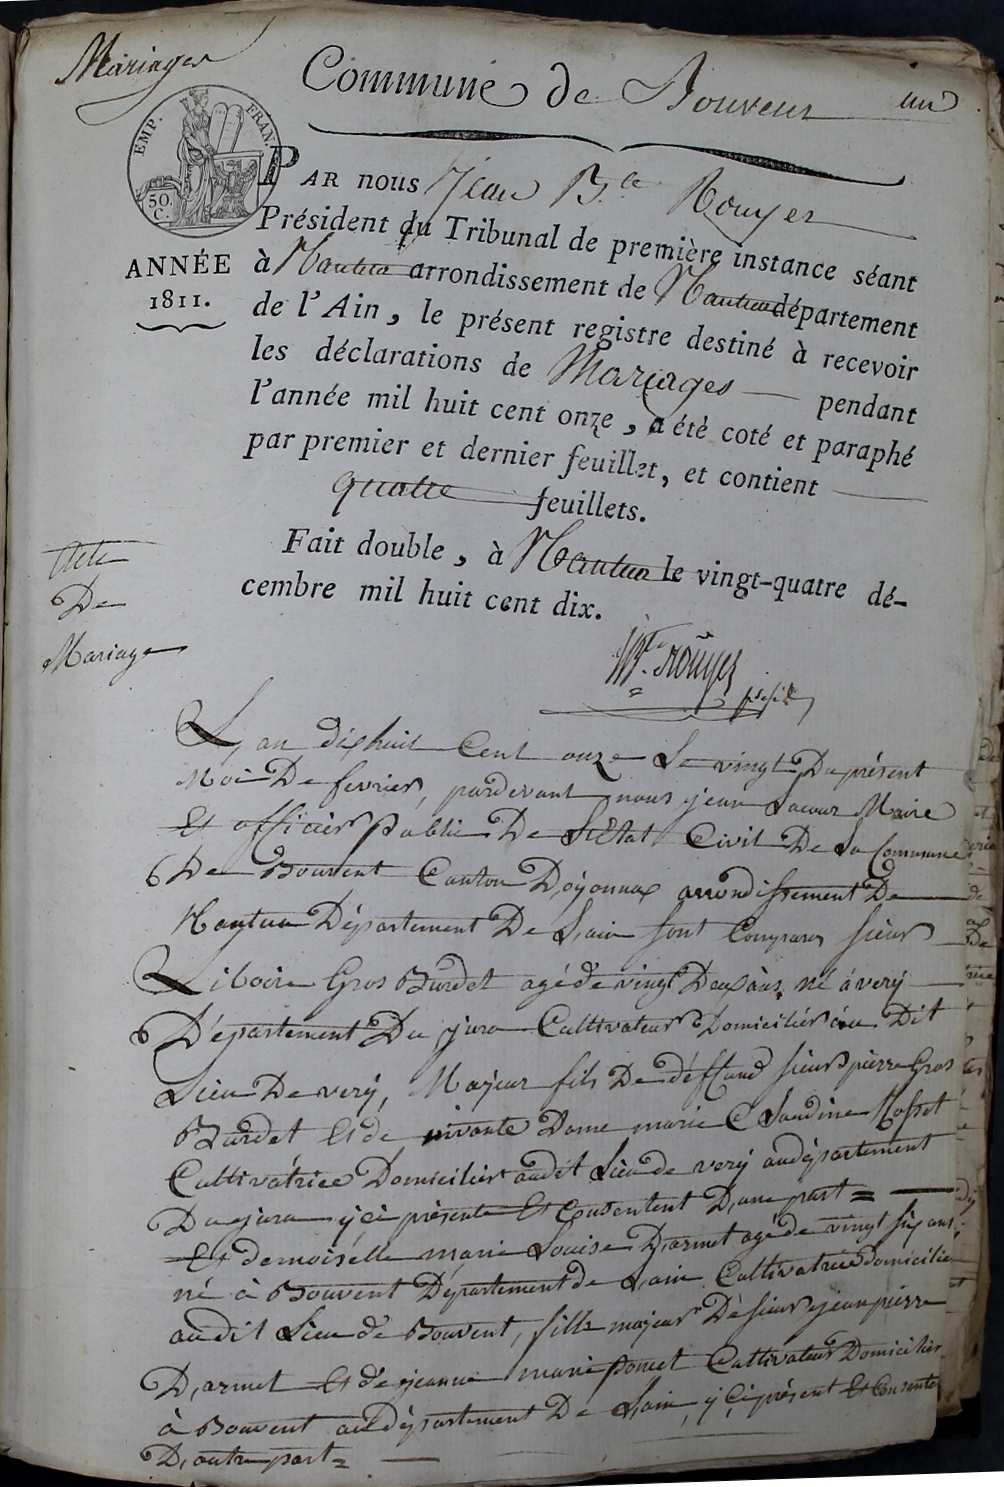 Mariages
Commune de Bouvent
un
EMP. FRAN.
50.
C.
ANNÉE
1811.
PAR nous Jean B.te Rouyer
Président du Tribunal de première instance séant
à Nantua arrondissement de Nantua département
de l'Ain, le présent registre destiné à recevoir
les déclarations de Mariages pendant
l'année mil huit cent onze, a été coté et paraphé
par premier et dernier feuillet, et contient
quatre feuillets.
Fait double, à Nantua le vingt-quatre dé-
cembre mil huit cent dix.
Rouyer
Acte
De
Mariage
L'an dixhuit Cent onze Le vingt Du présent
Moi De fevrier, pardevant nous jean Lacour Maire
Et officier Public De L'Etat Civil De La Commune
De Bouvent Canton D'oyonnax arrondissement De
Nantua Département De L'ain sont Comparus sieur
Liboire Gros Burdet agé de vingt Deux ans né à very
Département Du jura Cultivateur Domicilier au Dit
Lieu De very, Majeur fils De deffund sieur pierre Gros
Burdet Et de vivante Dame marie Claudine Mosset
Cultivatrice Domicilier audit Lieu de very au département
Du jura y ci présente Et Consentent D'une part =
Et demoiselle marie Louise Darmet agé de vingt six ans,
né à Bouvent Département de L'ain Cultivatrice Domicilie
audit Lieu de Bouvent, fille majeur De sieur jean pierre
Darmet Et de jeanne marie Pomet Cultivateur Domicilier
à Bouvent au département De L'ain, y ci présent Et Consente
D'autre part =